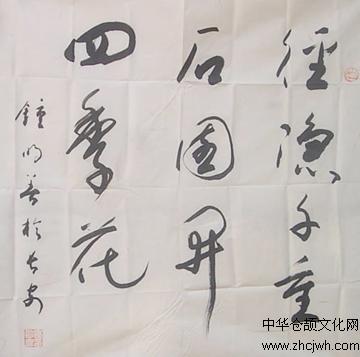 徑隱千重
石園開
四季花
鍾明善於長安
中华仓颉文化网
www.zhcjwh.com